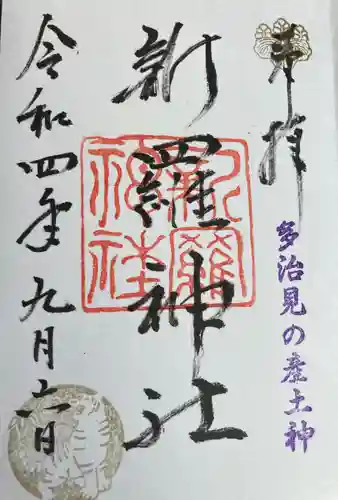 奉拝
多治見の産土神
新羅神社
新羅神社
令和四年九月六日